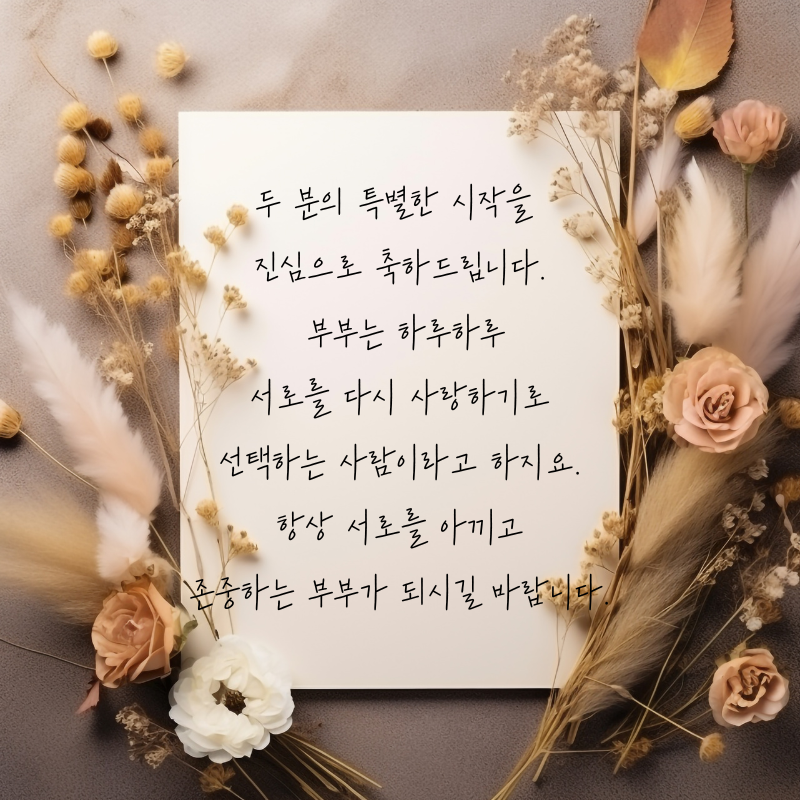 두 분의 특별한 시작을
진심으로 축하드립니다.
부부는 하루하루
서로를 다시 사랑하기로
선택하는 사람이라고 하지요.
항상 서로를 아끼고
존중하는 부부가 되시길 바랍니다.